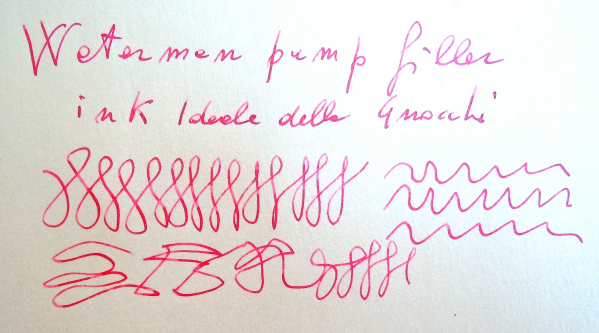 Waterman pump filler
ink Ideale delle Gnocchi